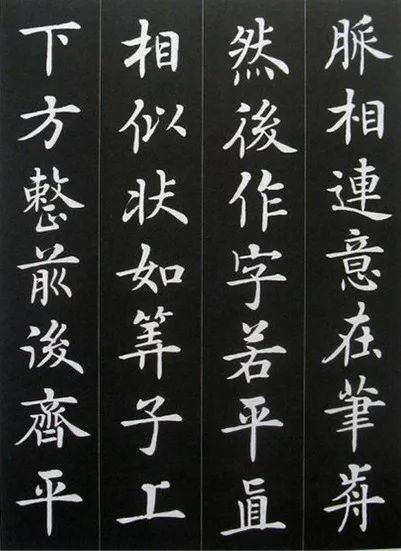 脈相連意在筆歬
然後作字若平直
相似狀如筭子上
下方整前後齊平